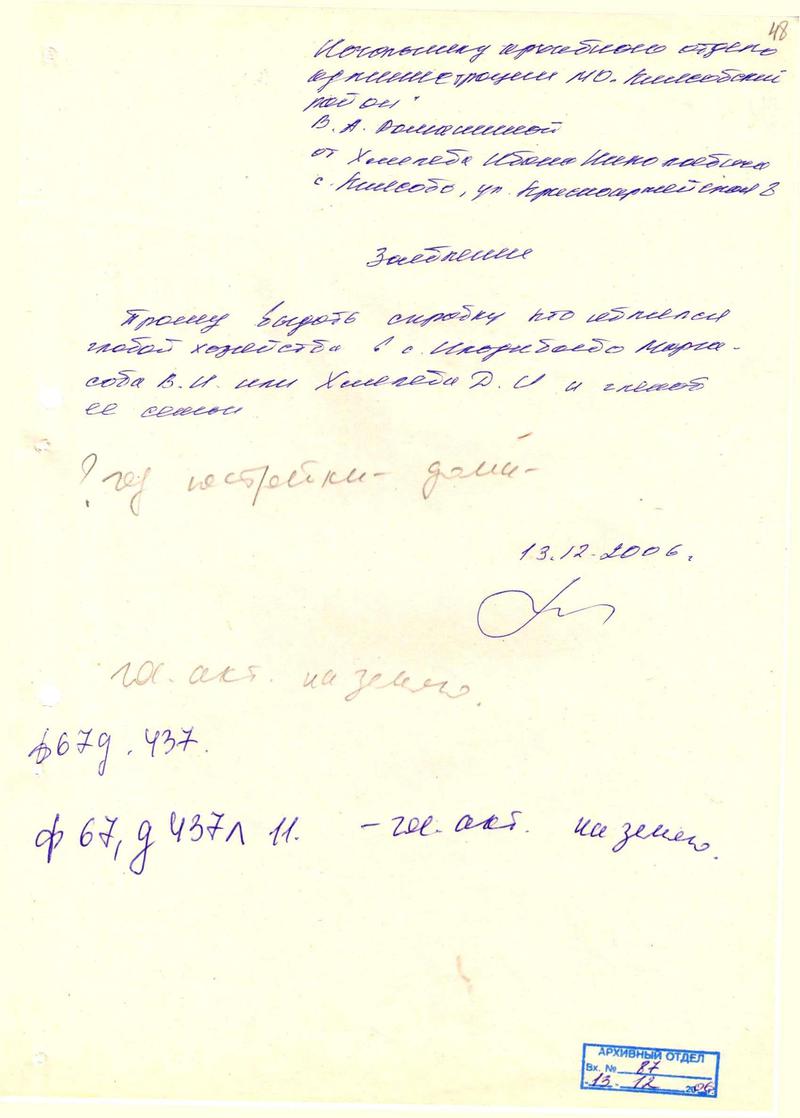 48
Начальнику архивного отдела
администрации МО "Киясовский
район"
В. А. Домашиной
от Хмелева Ивана Николаевича
с. Киясово, ул. Красноармейская 3
Заявление
Прошу выдать справку кто являлся
главой хозяйства в с.
сова В. И. или Хмелева Д. И и членов
ее семьи
? год постройки - дома -
13.12.2006г.
гос. акт. на землю.
ф 67 д. 437.
ф 67, д 437 л 11. - гос. акт. на землю.
АРХИВНЫЙ ОТДЕЛ
Вх. № 87
13 12 2006